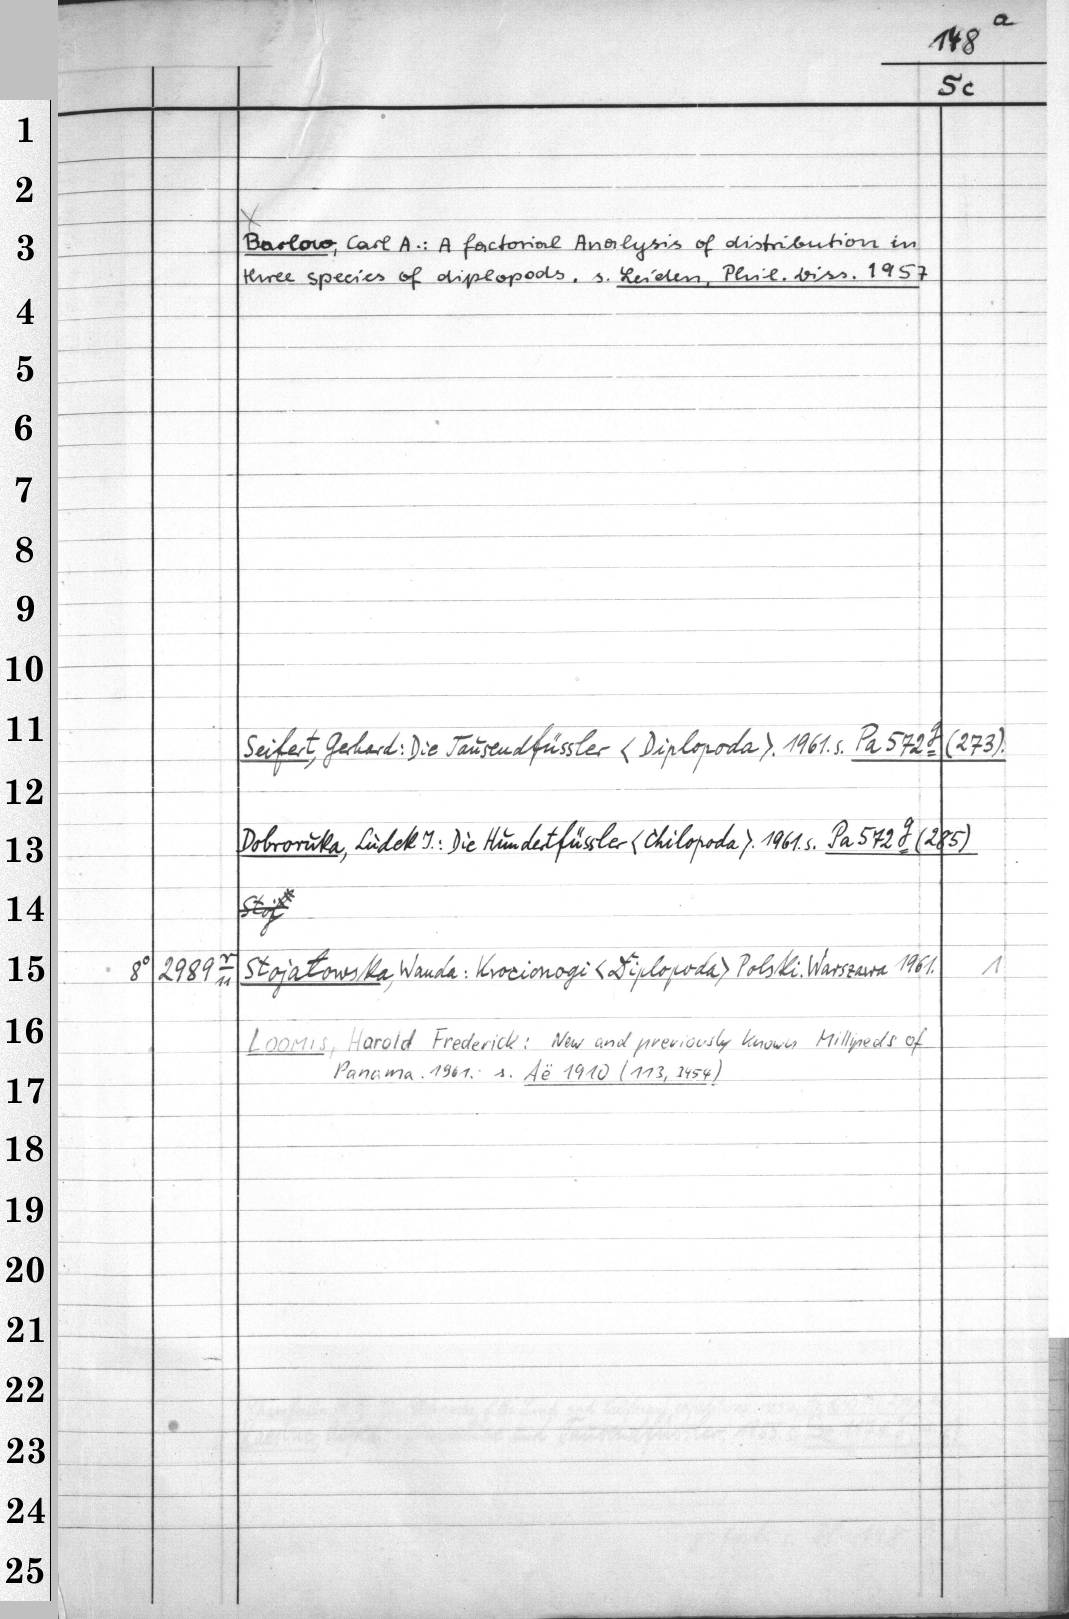 148 a
5c
1
2
3
Barlow, Carl A.: A factorial Analysis of distribution in
three species of diplopods. s. Leiden, Phil. Diss. 1957
4
5
6
7
8
9
10
11
Seifert, Gerhard: Die Tausendfüssler <Diplopoda>. 1961. s. Pa 572 g (273).
12
13
Dobroruka, Luděk J.: Die Hundertfüssler <Chilopoda>. 1961. s. Pa 572 g (285)
14
Stoj
15
8° 2989 r/11 Stojałowska, Wanda: Krocionogi <Diplopoda> Polski. Warszawa 1961. 1
16
LOOMIS, Harold Frederick: New and previously known Millipeds of
Panama. 1961. s. Aë 1910 (113, 3454)
17
18
19
20
21
22
23
24
25